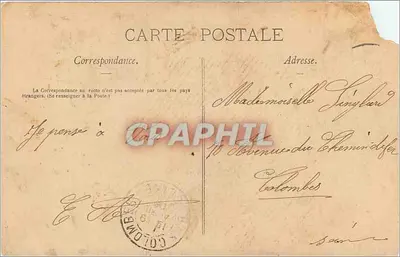 CARTE POSTALE
Correspondance.
Adresse.
La Correspondance au recto n'est pas acceptée par tous les pays
étrangers. (Se renseigner à la Poste)
Mademoiselle
Je pense à
CPARAMA
10 Avenue du Chemin de fer
Colombes
E
COLOMBES
Seine